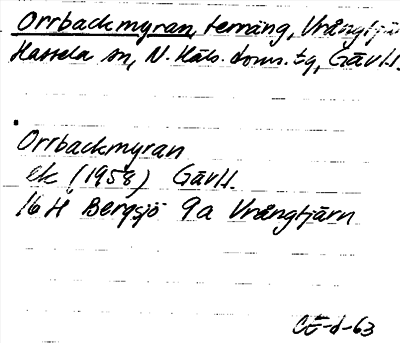 Orrbackmyran, terräng, Vrångtjär
Hassela sn, N. Häls. doms. tg, GävlI.
Orrbackmyran
ek (1958) GävlI.
16 H Bergsjö 9a Vrångtjärn
CÖ-d-63